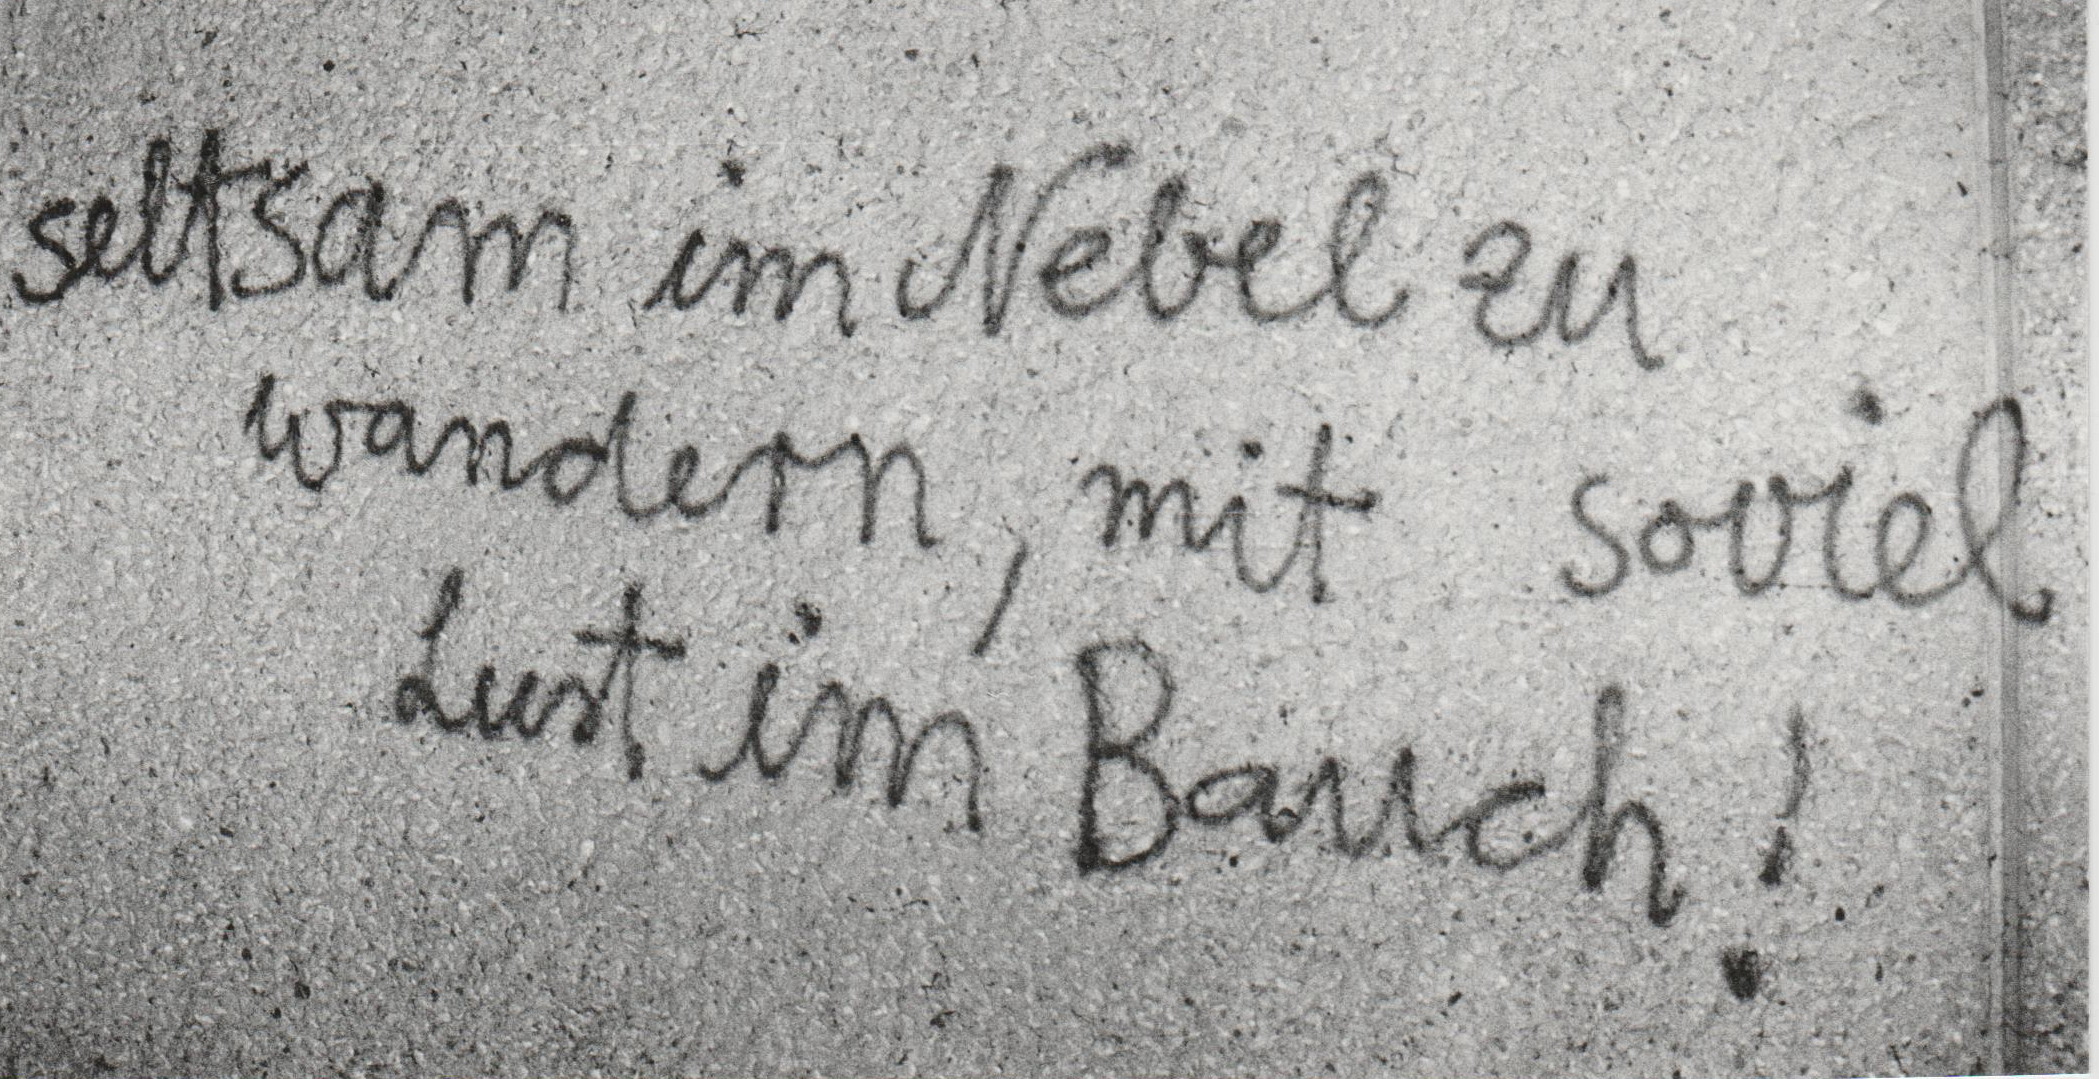 seltsam im Nebel zu
wandern, mit soviel
Lust im Bauch!